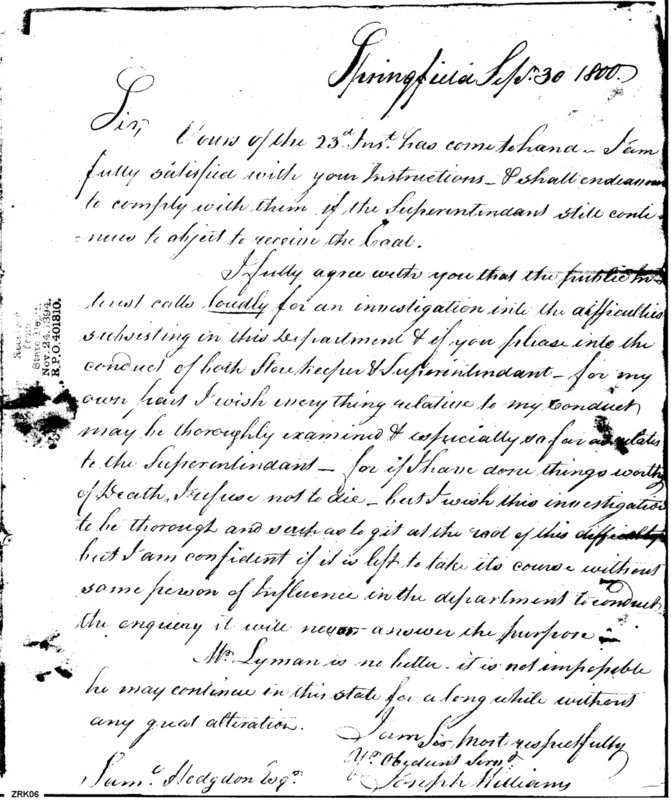 Springfield Sepr. 30 1800.
Sir,
Yours of the 23d. Inst. has come to hand – I am
fully satisfied with your Instructions – & shall endeavour
to comply with them if the Superintendant still conti-
-nues to object to receive the Coal.
I fully agree with you that the public In-
terest calls loudly for an investigation into the difficulties
subsisting in this Department & if you please into the
conduct of both Storekeeper & Superintendant – for my
own part I wish everything relative to my Conduct
may be thoroughly examined & especially so far as relates
to the Superintendant – for if I have done things worthy
of Death, I refuse not to die – but I wish this investigation
to be thorough and such as to get at the root of this difficulty
but I am confident if it is left to take its course without
some person of Influence in the department to conduct
the enquery it will never answer the purpose –
Mr. Lyman is no better – it is not impossible
he may continue in this state for a long while without
any great alteration.
I am
Sir, Most respectfully
Yr. Obedient Servt.
Joseph Williams
Saml. Hodgdon Esqr.
Received
from
State Dept.
Nov. 24, 1894.
B.P.O. 401810.
ZRK06